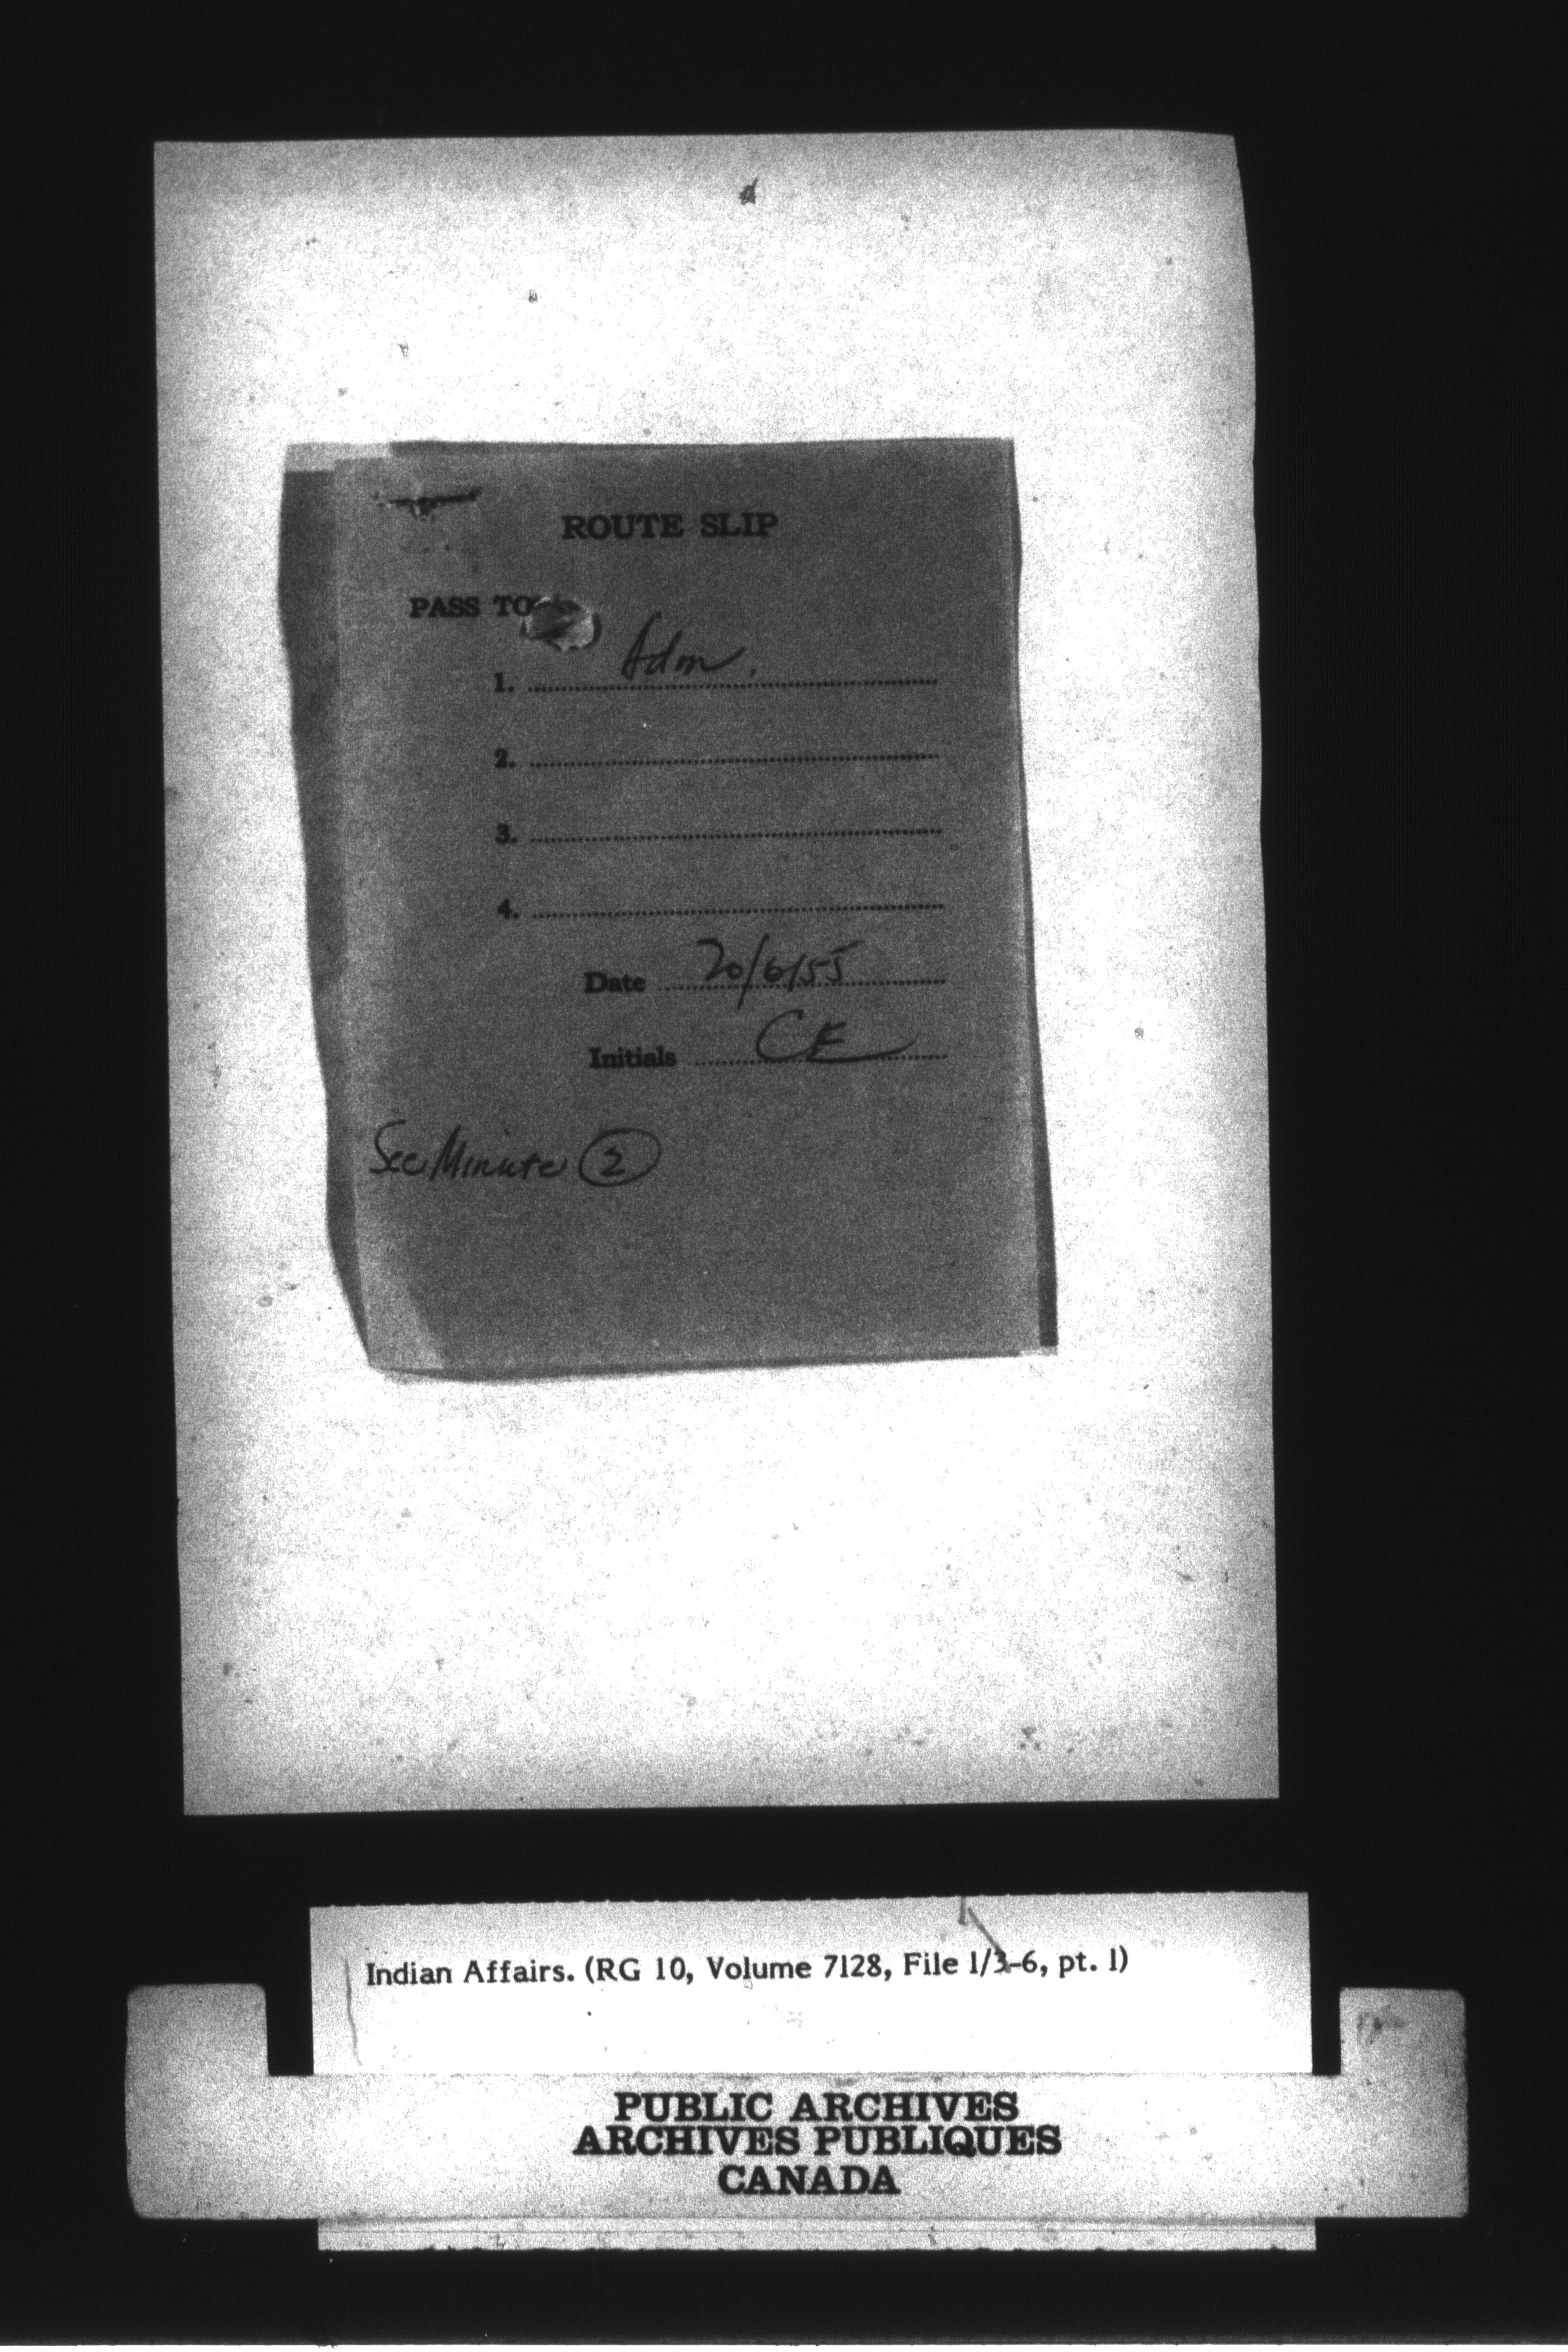 ROUTE SLIP
PASS TO
1. Adm.
2.
3.
4.
Date 20/6/55
Initials CE
See Minute 2
Indian Affairs. (RG 10, Volume 7128, File 1/3-6, pt. 1)
PUBLIC ARCHIVES
ARCHIVES PUBLIQUES
CANADA